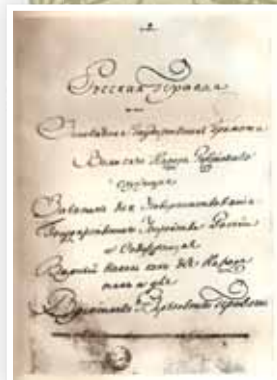 Русская Правда
или
Заповедная Государственная Грамота
Великаго Народа Россійскаго
служащая
для Усовершенствованія
Государственнаго Устройства Россіи
и Содержащая
Верный Наказ как для Народа
так и для
Временнаго Верховнаго